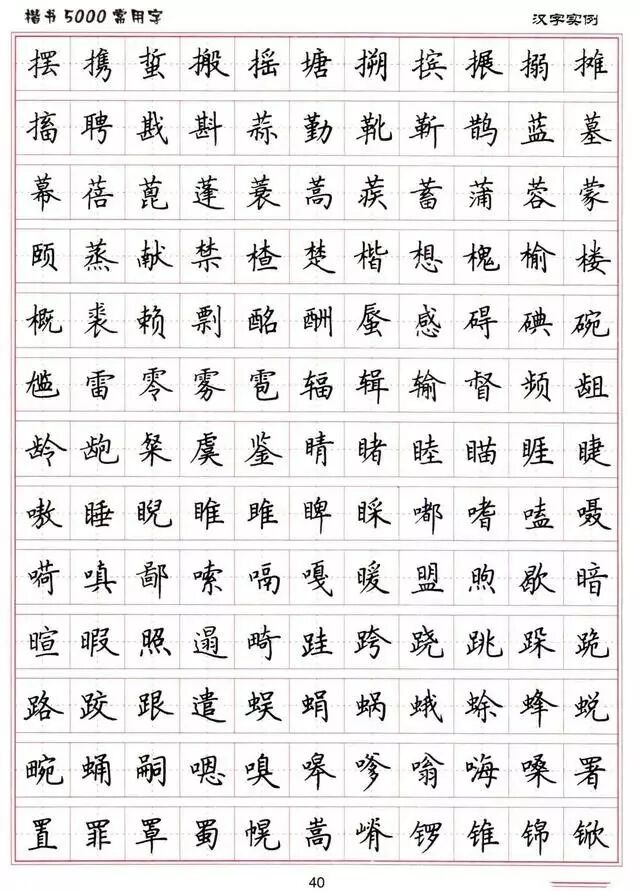 楷书5000常用字 汉字实例
摆 携 蜇 搬 摇 塘 搠 摈 搌 搦 摊
搐 聘 戡 斟 蒜 勤 靴 靳 鹊 蓝 墓
幕 蓓 蓖 蓬 蓑 蒿 蒺 蓄 蒲 蓉 蒙
颐 蒸 献 禁 楂 楚 楷 想 槐 榆 楼
概 裘 赖 剽 酩 酬 蜃 感 碍 碘 碗
尴 雷 零 雾 雹 辐 辑 输 督 频 龃
龄 龅 粲 虞 鉴 睛 睹 睦 瞄 睚 睫
嗷 睡 睨 雎 睢 睥 睬 嘟 嗜 嗑 嗫
嗬 嗔 鄙 嗦 嗝 嘎 暖 盟 煦 歇 暗
暄 暇 照 遢 畸 跬 跨 跷 跳 跺 跪
路 跤 跟 遣 蜈 蜎 蜗 蛾 蜍 蜂 蜕
畹 蛹 嗣 嗯 嗅 嗥 嗲 嗡 嗨 嗓 署
置 罪 罩 蜀 幌 嵩 嵴 锣 锥 锦 锨
40